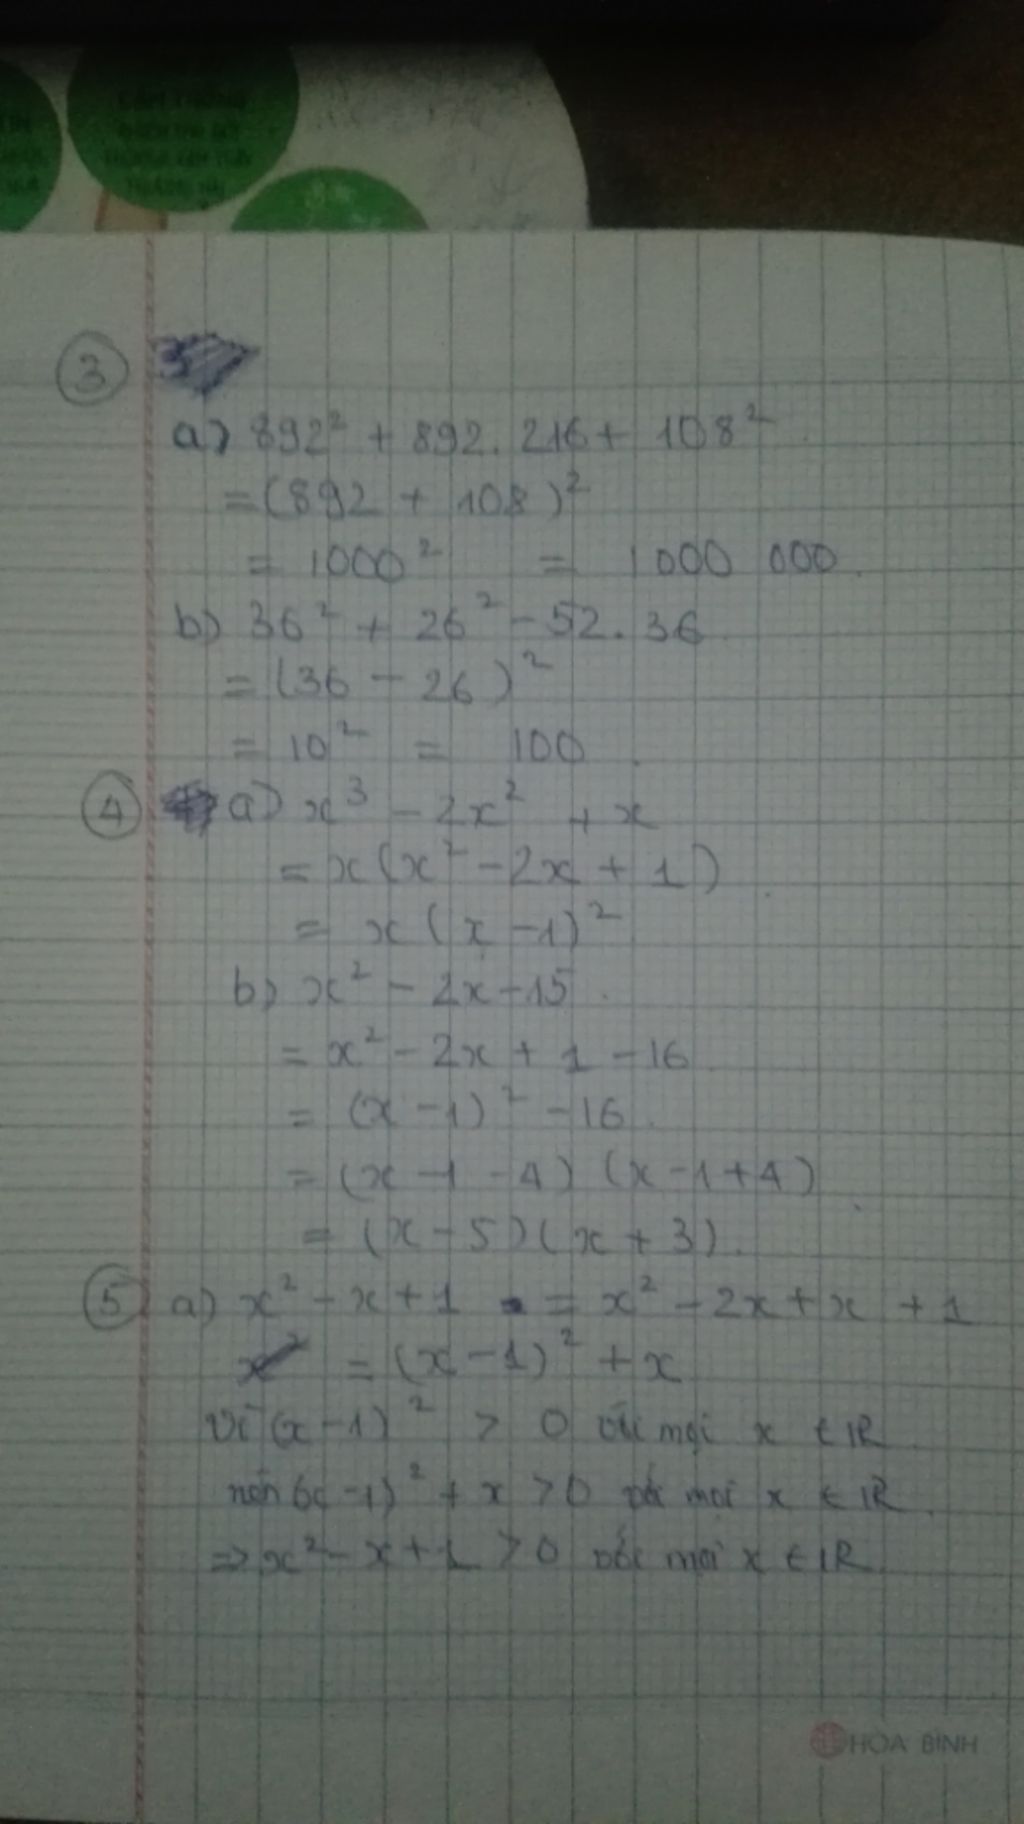 ③
a) 892² + 892. 216 + 108²
= (892 + 108)²
= 1000² = 1000 000.
b) 36² + 26² - 52. 36
= (36 - 26)²
= 10² = 100.
④ a) x³ - 2x² + x
= x(x² - 2x + 1)
= x(x - 1)²
b) x² - 2x - 15.
= x² - 2x + 1 - 16
= (x - 1)² - 16.
= (x - 1 - 4) (x - 1 + 4)
= (x - 5)(x + 3).
⑤ a) x² - x + 1 = x² - 2x + x + 1
= (x - 1)² + x
Vì (x - 1)² > 0 với mọi x ∈ IR
nên (x - 1)² + x > 0 với mọi x ∈ IR.
=> x² - x + 1 > 0 với mọi x ∈ IR.
HOA BINH